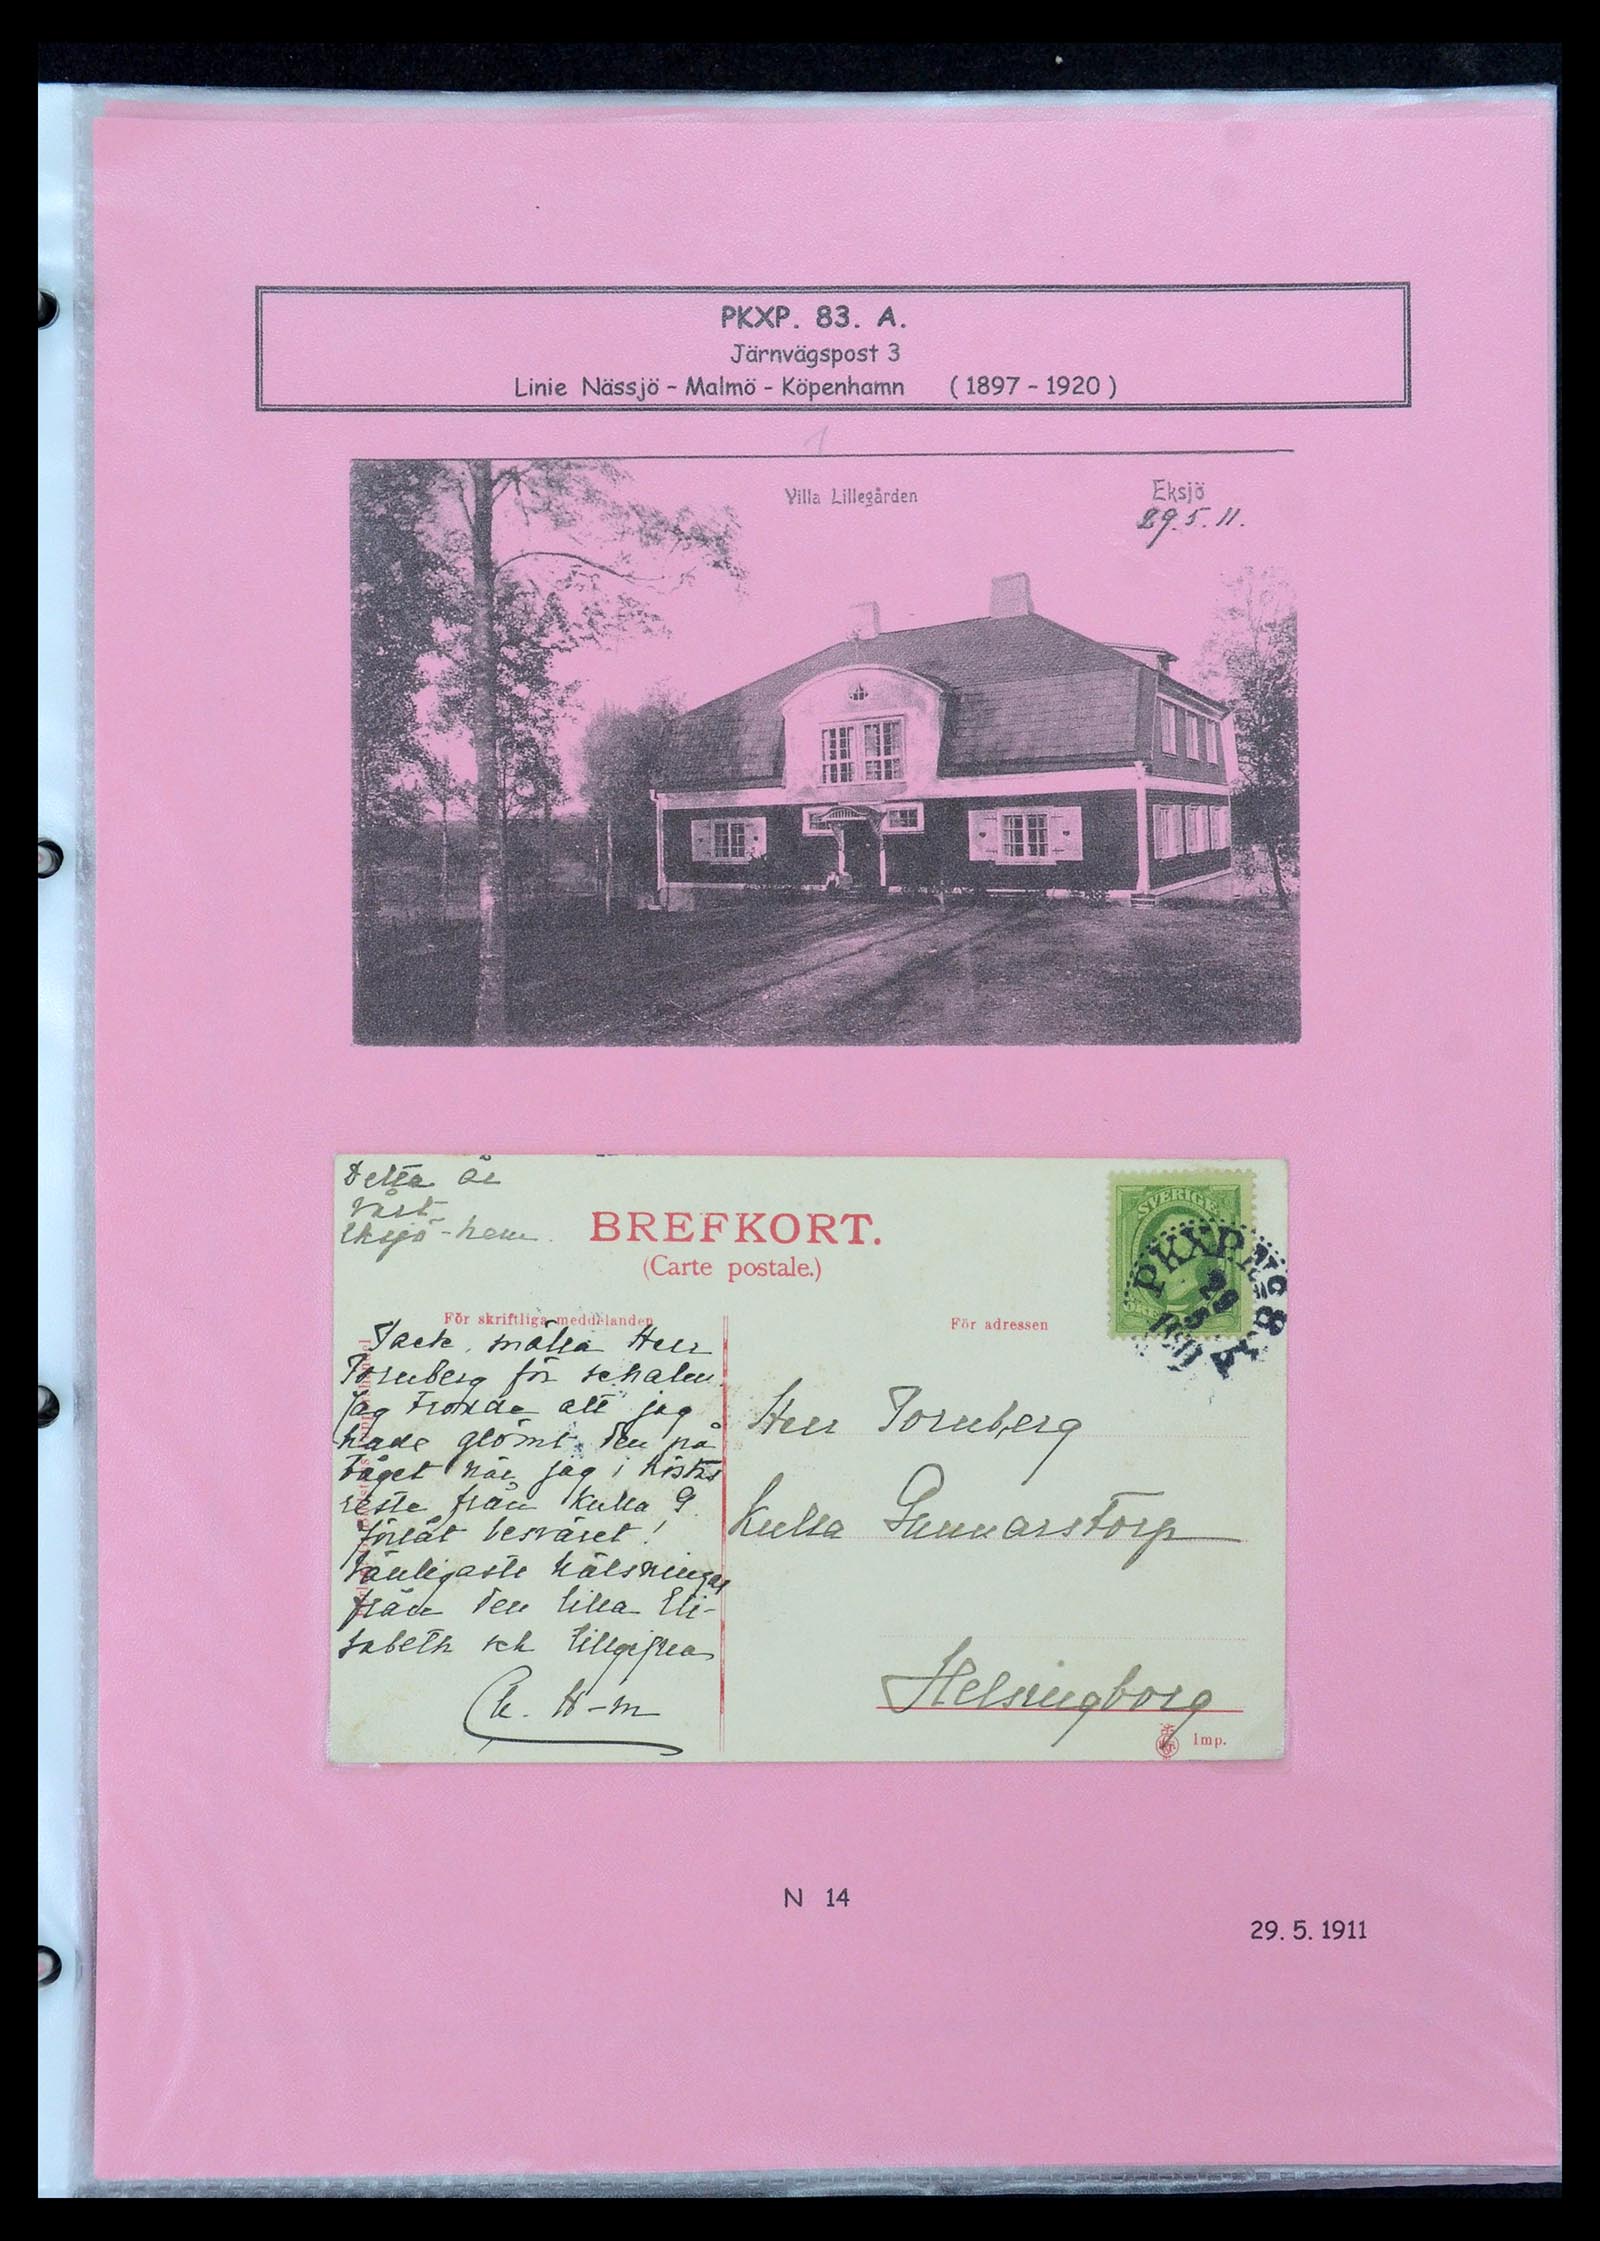 PKXP. 83. A.
Järnvägspost 3
Linie Nässjö - Malmö - Köpenhamn ( 1897 - 1920 )
Villa Lillegården
Eksjö
29. 5. 11.
Detta är
vårt
Eksjö-hem.
BREFKORT.
(Carte postale.)
SVERIGE
PKXP. No 83 A
29
5
1911
För skriftliga meddelanden
För adressen
Tack, målla Herr
Tornberg för schalen.
Jag trodde att jag
hade glömt den på
tåget när jag i höstas
reste från Kulla G.
förlåt besväret!
Vänligaste hälsningar
från den lilla Eli-
sabeth och tillgifna
Ch. H-m
Herr Tornberg
Kulla Gunnarstorp
Helsingborg
Imp.
N 14
29. 5. 1911